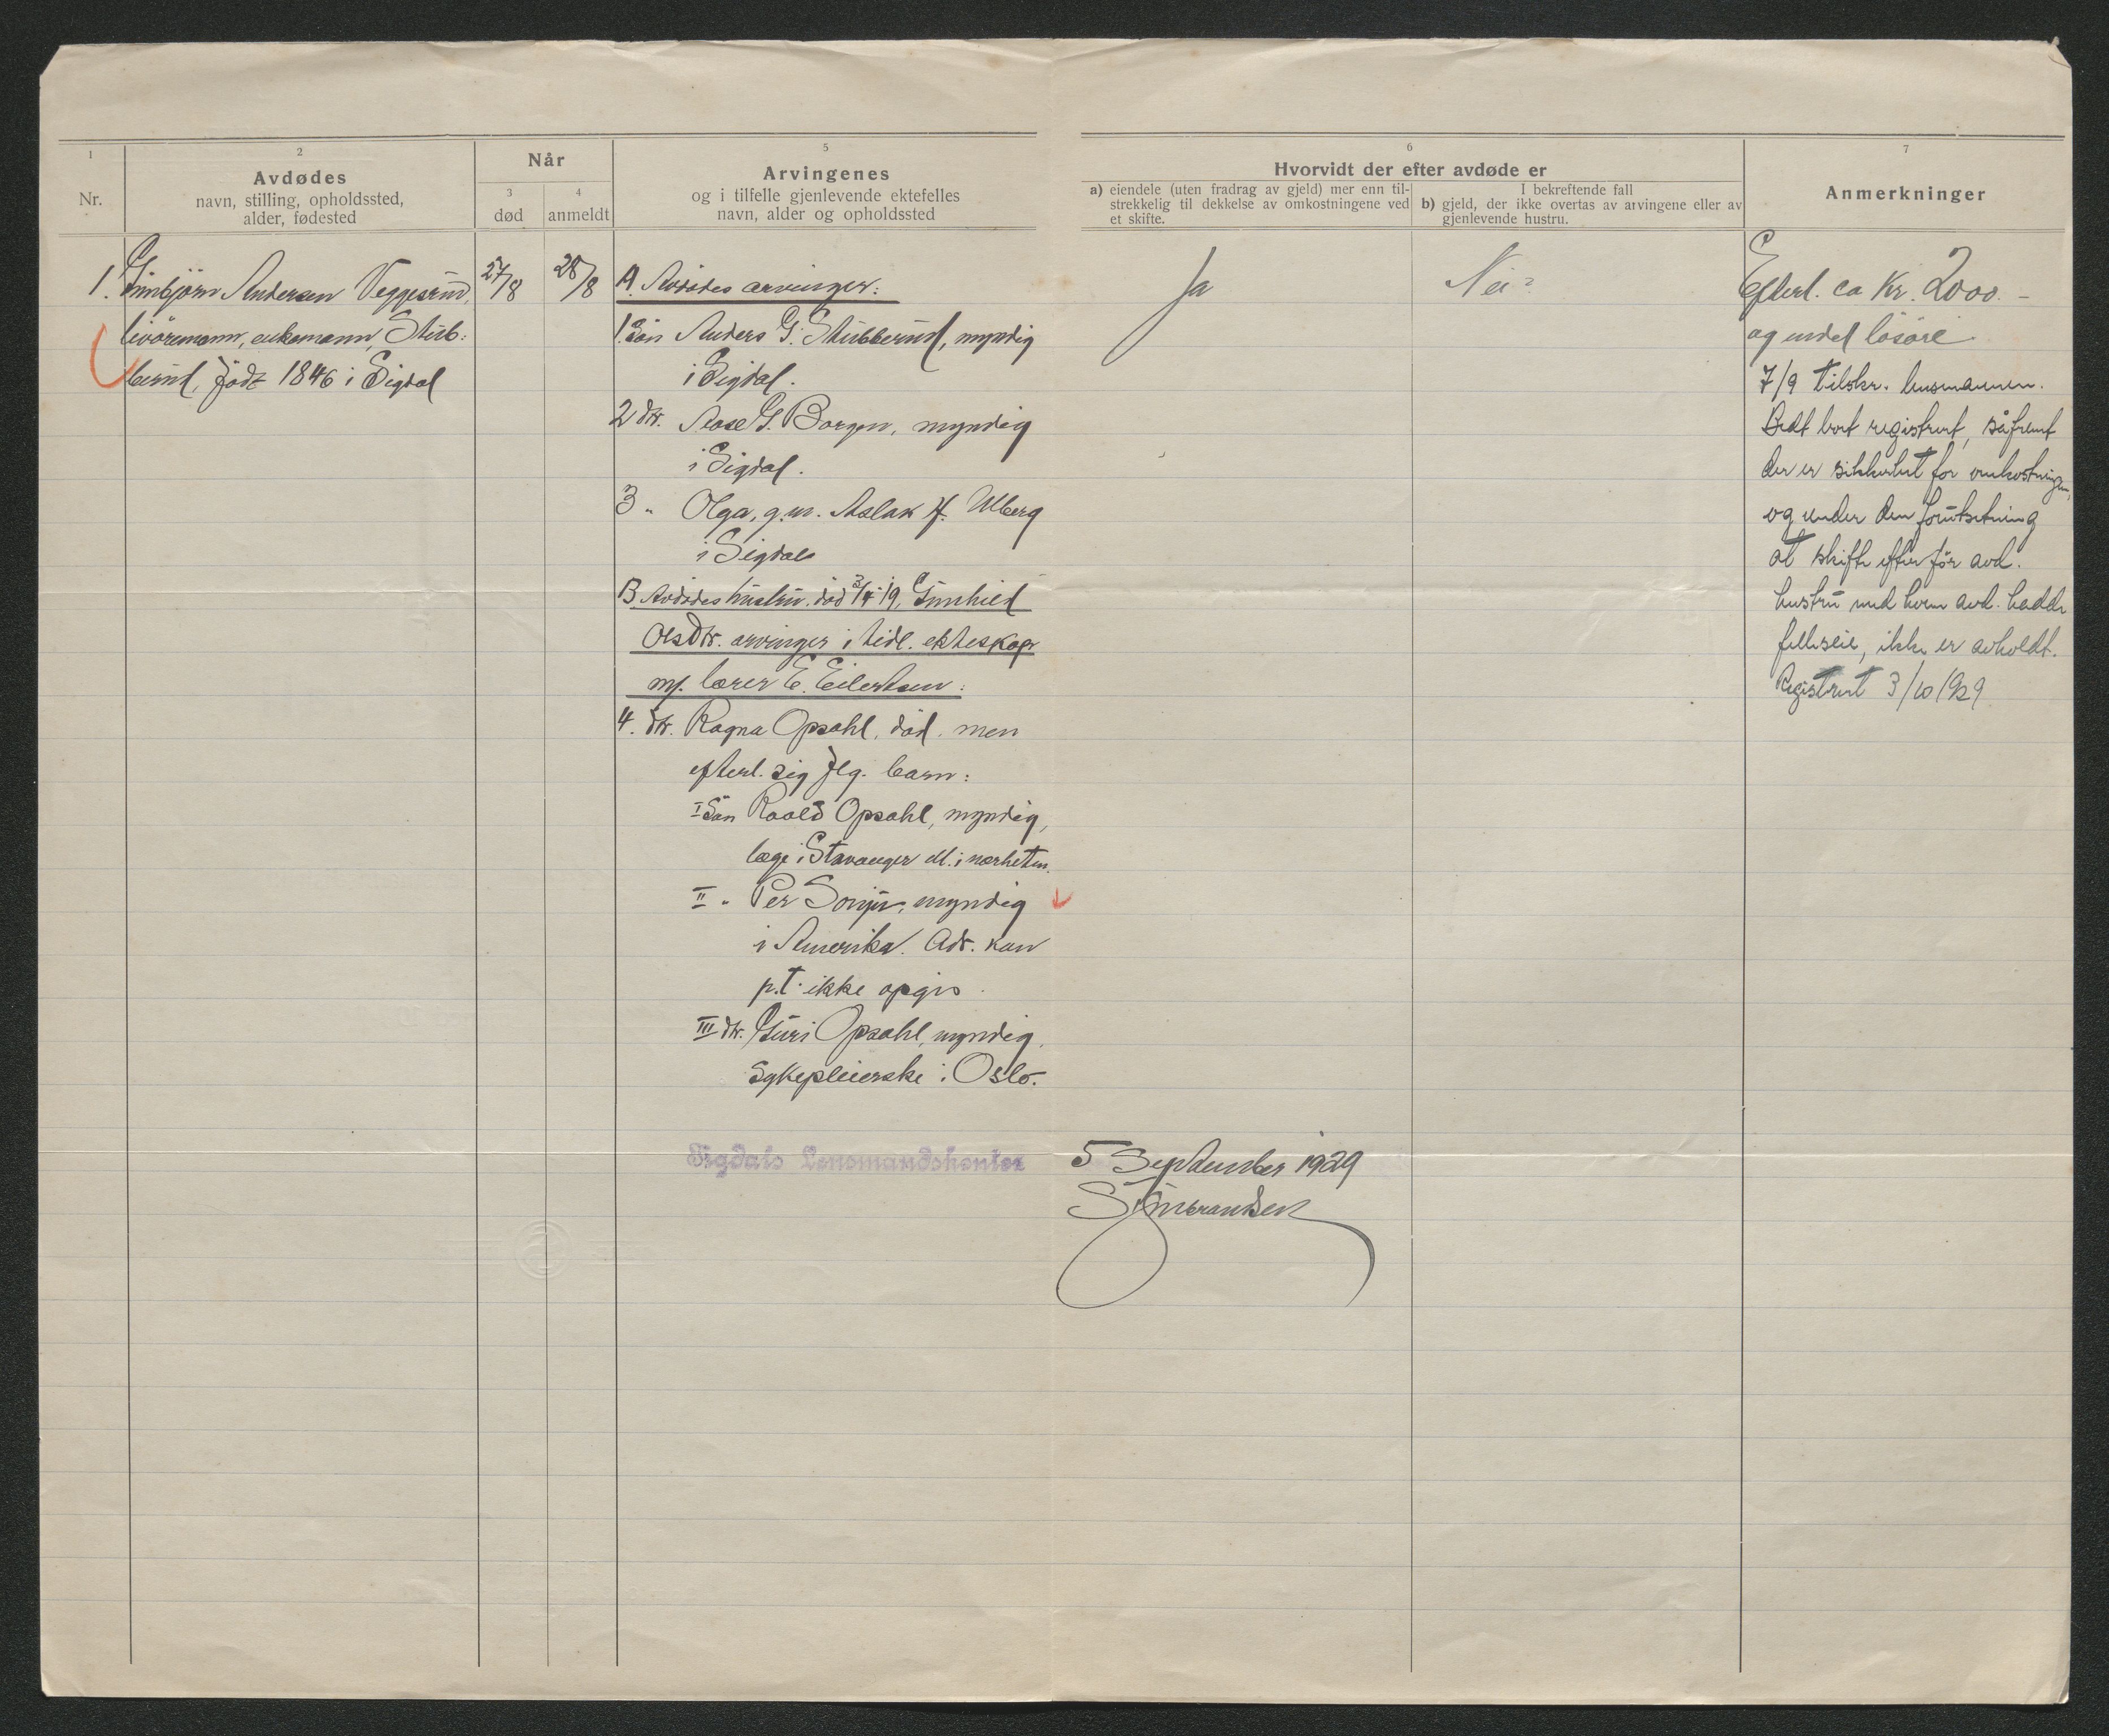 1
Nr.
2
Avdødes
navn, stilling, opholdssted,
alder, fødested
Når
3
død
4
anmeldt
5
Arvingenes
og i tilfelle gjenlevende ektefelles
navn, alder og opholdssted
6
Hvorvidt der efter avdøde er
a) eiendele (uten fradrag av gjeld) mer enn til-
strekkelig til dekkelse av omkostningene ved
et skifte.
I bekreftende fall
b) gjeld, der ikke overtas av arvingene eller av
gjenlevende hustru.
7
Anmerkninger
1. Gunbjörn Andersen Veggesrud,
livöremann, enkemann, Stub-
berud, född 1846 i Sigdal
27/8
28/8
A. Avdödes arvinger:
1. Sön Anders G. Stubberud, myndig
i Sigdal.
2 dtr. Aase G. Borgen, myndig
i Sigdal.
3 " Olga, g.m. Aslak H. Ulberg
i Sigdal
B Avdödes hustru, död 3/4-19, Gunhild
Olsdtr. arvinger i tidl. ekteskap
m/. lærer E. Eilertsen:
4. dtr. Ragna Opsahl, död, men
efterl. sig flg. barn:
I Sön Roald Opsahl, myndig,
læge i Stavanger ell. i nærheten.
II " Per, myndig
i Amerika. Adr. kan
p.t. ikke opgis.
III dtr. Guri Opsahl, myndig,
Sykepleierske i Oslo.
Ja
Nei
Efterl. ca Kr. 2000.-
og endel lösöre
7/9 Tilskr. lensmannen.
Bedt bort registrert, såfremt
der er sikkerhet for omkostningen,
og under den forutsetning
at skifte efter før avd.
hustru med hvem avd. hadde
felleseie, ikke er avholdt.
Registrert 3/10/929
Sigdals Lensmandskontor
5 September 1929
S. Gulbrandsen